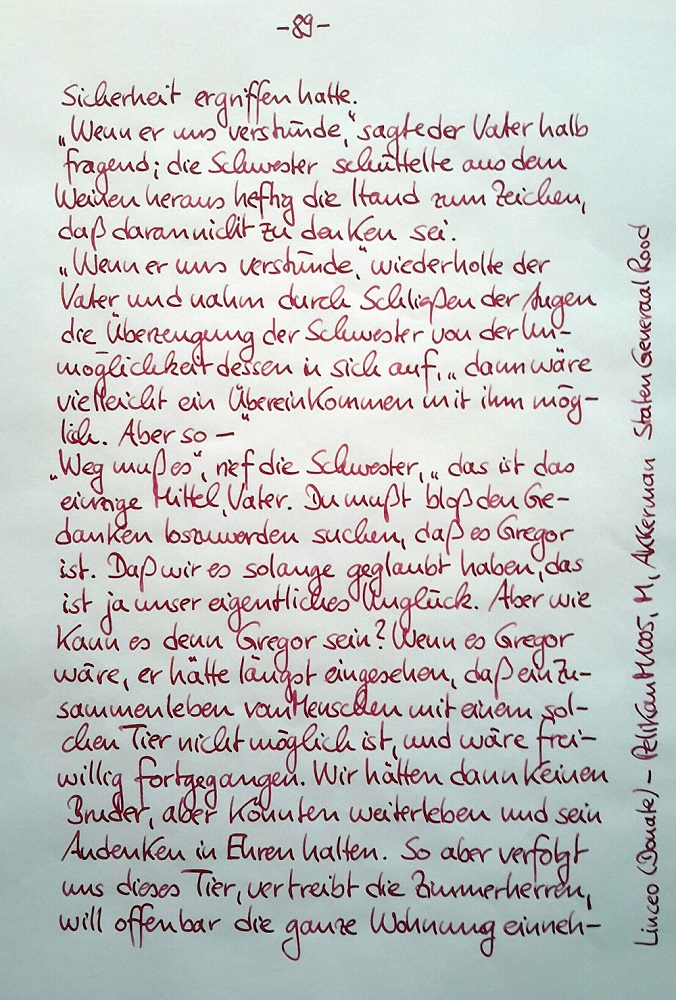 -89-
Sicherheit ergriffen hatte.
„Wenn er uns verstünde,“ sagte der Vater halb
fragend; die Schwester schüttelte aus dem
Weinen heraus heftig die Hand zum Zeichen,
daß daran nicht zu denken sei.
„Wenn er uns verstünde,“ wiederholte der
Vater und nahm durch Schließen der Augen
die Überzeugung der Schwester von der Un-
möglichkeit dessen in sich auf, „dann wäre
vielleicht ein Übereinkommen mit ihm mög-
lich. Aber so —“
„Weg muß es“, rief die Schwester, „das ist das
einzige Mittel, Vater. Du mußt bloß den Ge-
danken loszuwerden suchen, daß es Gregor
ist. Daß wir es solange geglaubt haben, das
ist ja unser eigentliches Unglück. Aber wie
kann es denn Gregor sein? Wenn es Gregor
wäre, er hätte längst eingesehen, daß ein Zu-
sammenleben von Menschen mit einem sol-
chen Tier nicht möglich ist, und wäre frei-
willig fortgegangen. Wir hätten dann keinen
Bruder, aber könnten weiterleben und sein
Andenken in Ehren halten. So aber verfolgt
uns dieses Tier, vertreibt die Zimmerherren,
will offenbar die ganze Wohnung einneh-
Linceo (Donate) - Pelikan M1005, M, Akkerman Staten Generaal Rood